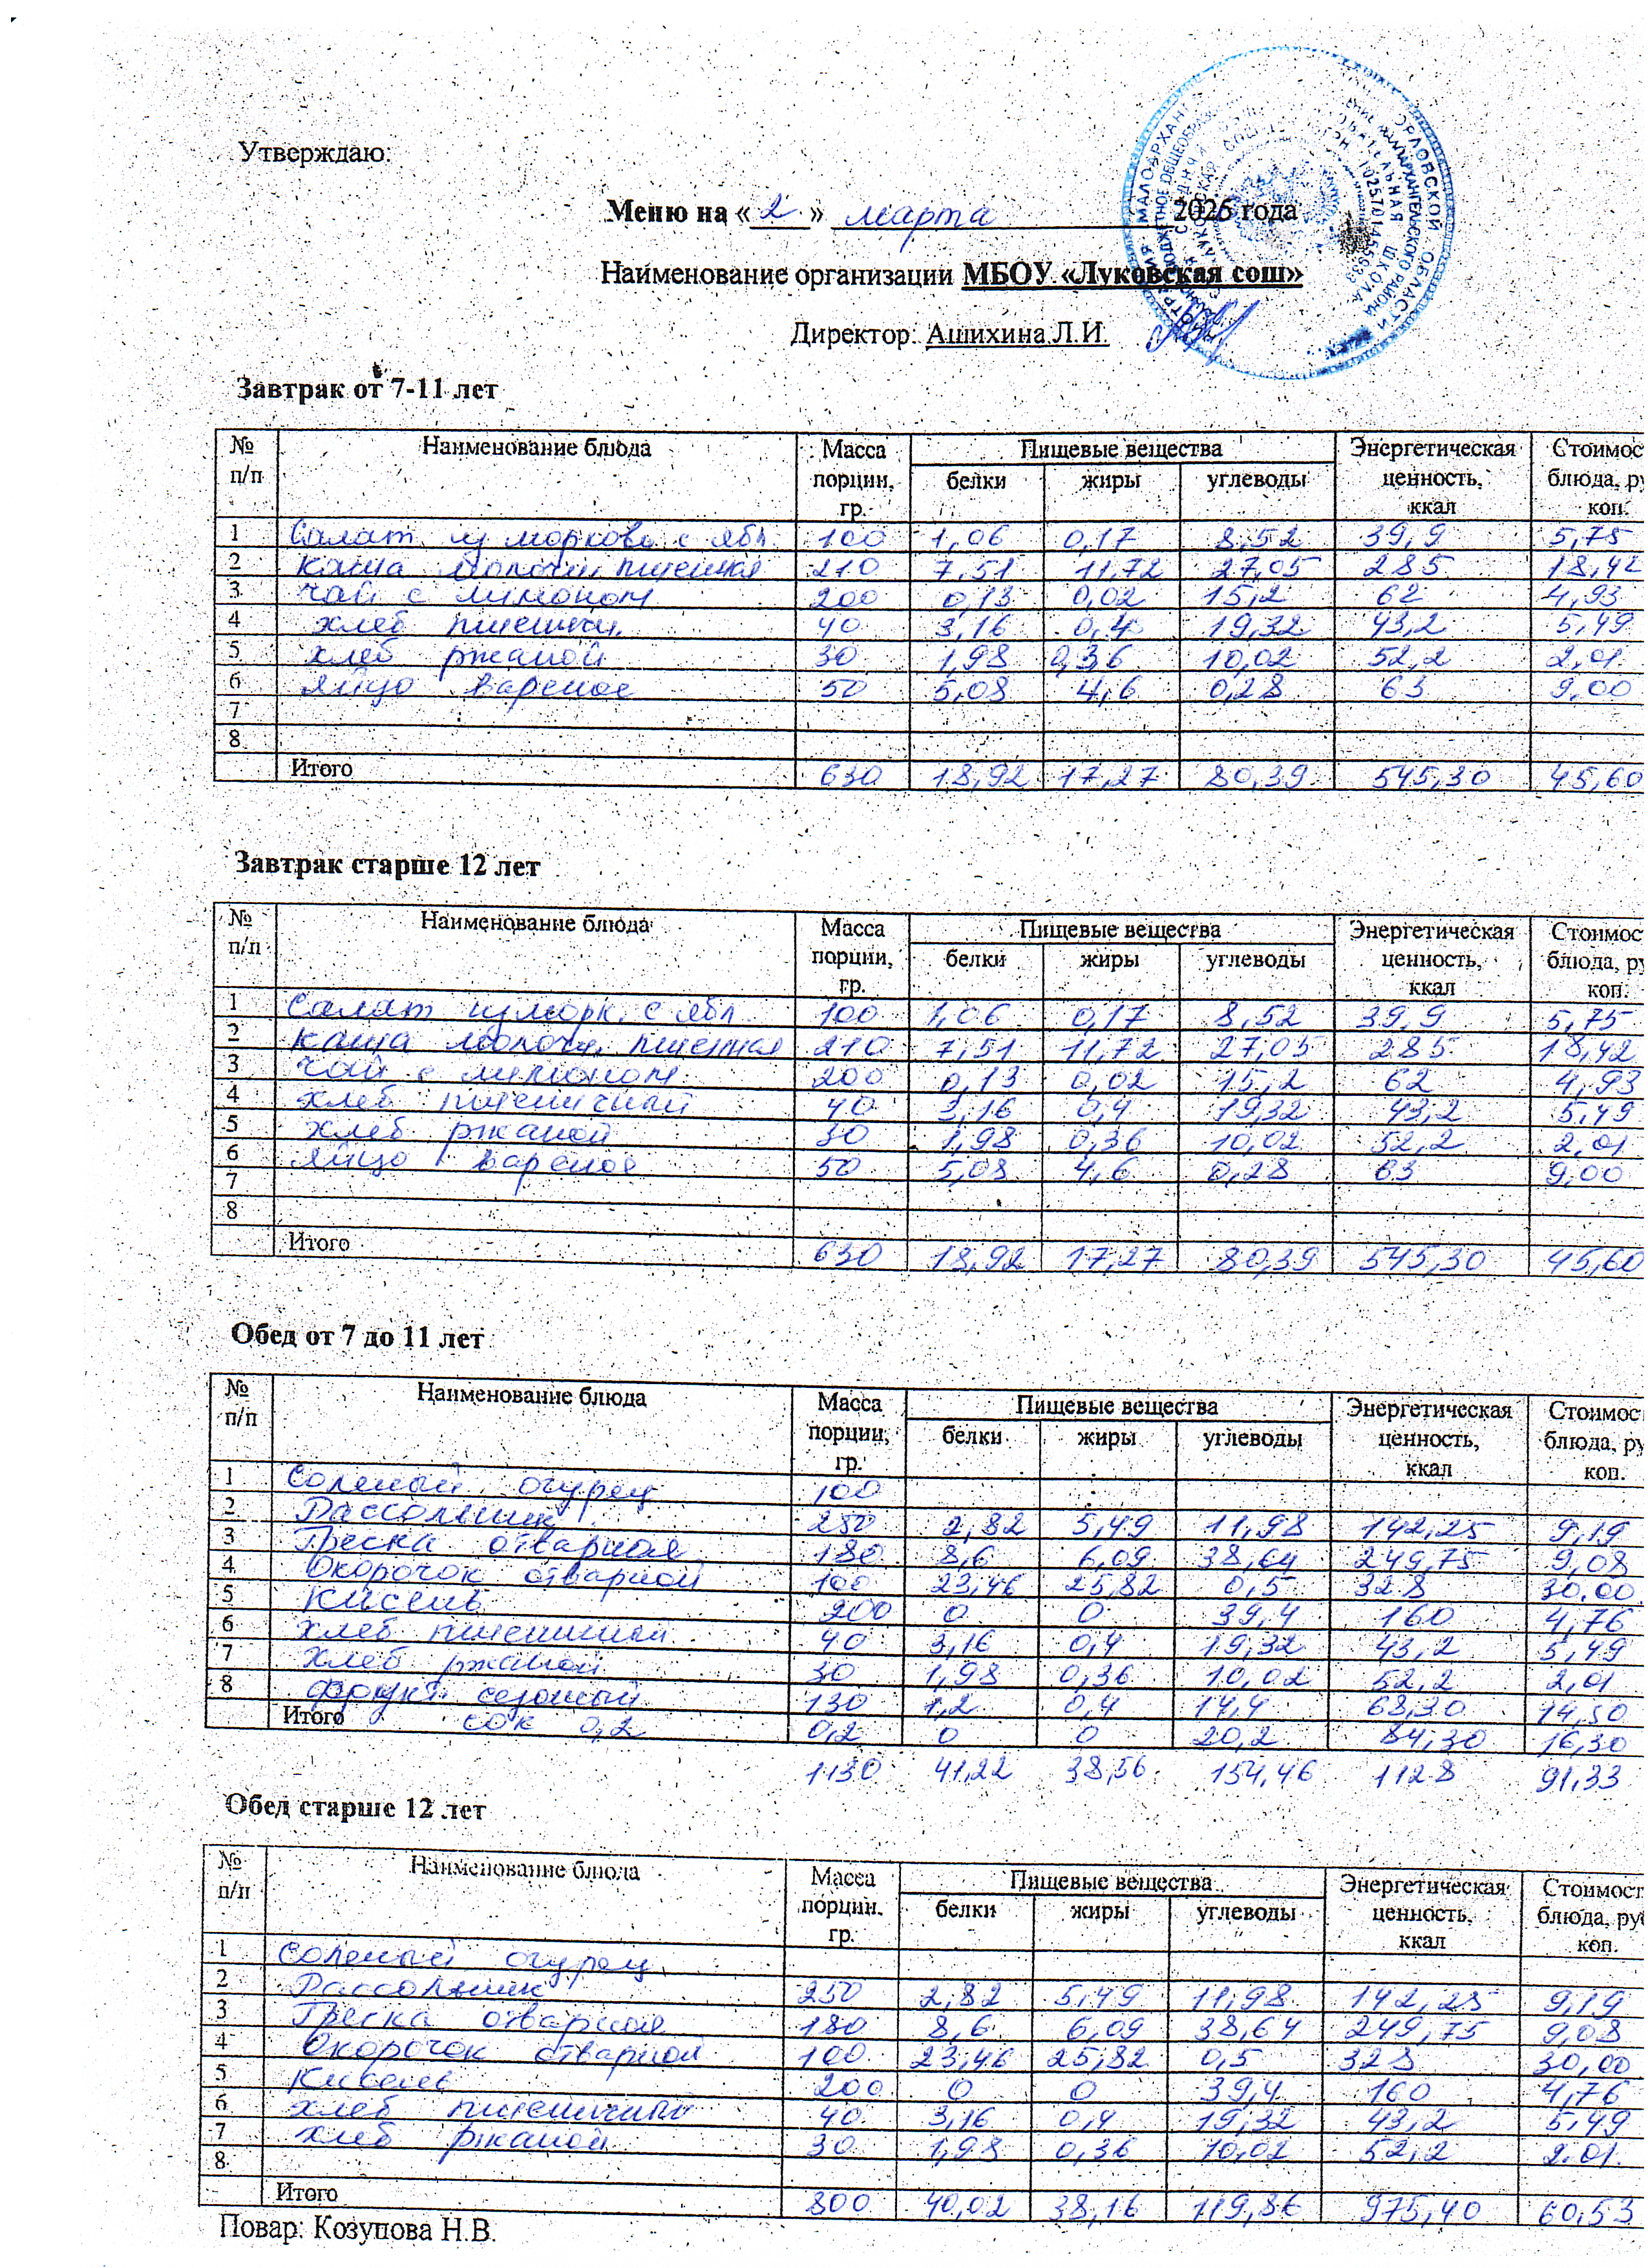 Утверждаю:
Меню на « 2 » марта 2026 года
Наименование организации МБОУ «Луковская сош»
Директор: Ашихина Л.И.
Завтрак от 7-11 лет
№ п/п Наименование блюда Масса порции, гр. Пищевые вещества Энергетическая ценность, ккал Стоимос блюда, ру коп.
белки жиры углеводы
1 Салат из моркови с ябл 100 1,06 0,17 8,52 39,9 5,75
2 каша молочн. пшенная 210 7,51 11,72 27,05 285 18,42
3 чай с лимоном 200 0,13 0,02 15,2 62 4,93
4 хлеб пшеничн. 40 3,16 0,4 19,32 43,2 5,49
5 хлеб ржаной 30 1,98 0,36 10,02 52,2 2,01
6 яйцо вареное 50 5,08 4,6 0,28 63 9,00
7
8
Итого 630 18,92 17,27 80,39 545,30 45,60
Завтрак старше 12 лет
№ п/п Наименование блюда Масса порции, гр. Пищевые вещества Энергетическая ценность, ккал Стоимос блюда, ру коп.
белки жиры углеводы
1 Салат из морк. с ябл 100 1,06 0,17 8,52 39,9 5,75
2 каша молочн. пшенная 210 7,51 11,72 27,05 285 18,42
3 чай с лимоном 200 0,13 0,02 15,2 62 4,93
4 хлеб пшеничный 40 3,16 0,4 19,32 43,2 5,49
5 хлеб ржаной 30 1,98 0,36 10,02 52,2 2,01
6 яйцо вареное 50 5,08 4,6 0,28 63 9,00
7
8
Итого 630 18,92 17,27 80,39 545,30 45,60
Обед от 7 до 11 лет
№ п/п Наименование блюда Масса порции, гр. Пищевые вещества Энергетическая ценность, ккал Стоимос блюда, ру коп.
белки жиры углеводы
1 Соленый огурец 100
2 Рассольник 250 2,82 5,49 11,98 142,25 9,19
3 Греска отварная 180 8,6 6,09 38,64 249,75 9,08
4 Окорочок отварной 100 23,46 25,82 0,5 328 30,00
5 Кисель 200 0 0 39,4 160 4,76
6 хлеб пшеничный 40 3,16 0,4 19,32 43,2 5,49
7 хлеб ржаной 30 1,98 0,36 10,02 52,2 2,01
8 фрукт сезонный 130 1,2 0,4 14,4 68,30 14,50
Итого сок 0,2 0,2 0 0 20,2 84,30 16,30
1130 41,22 38,56 154,46 1128 91,33
Обед старше 12 лет
№ п/п Наименование блюда Масса порции, гр. Пищевые вещества Энергетическая ценность, ккал Стоимост блюда, ру коп.
белки жиры углеводы
1 Соленый огурец
2 Рассольник 250 2,82 5,49 11,98 142,25 9,19
3 Греска отварная 180 8,6 6,09 38,64 249,75 9,08
4 Окорочок отварной 100 23,46 25,82 0,5 328 30,00
5 Кисель 200 0 0 39,4 160 4,76
6 хлеб пшеничный 40 3,16 0,4 19,32 43,2 5,49
7 хлеб ржаной 30 1,98 0,36 10,02 52,2 2.01
8
Итого 800 40,02 38,16 119,86 975,40 60,53
Повар: Козупова Н.В.